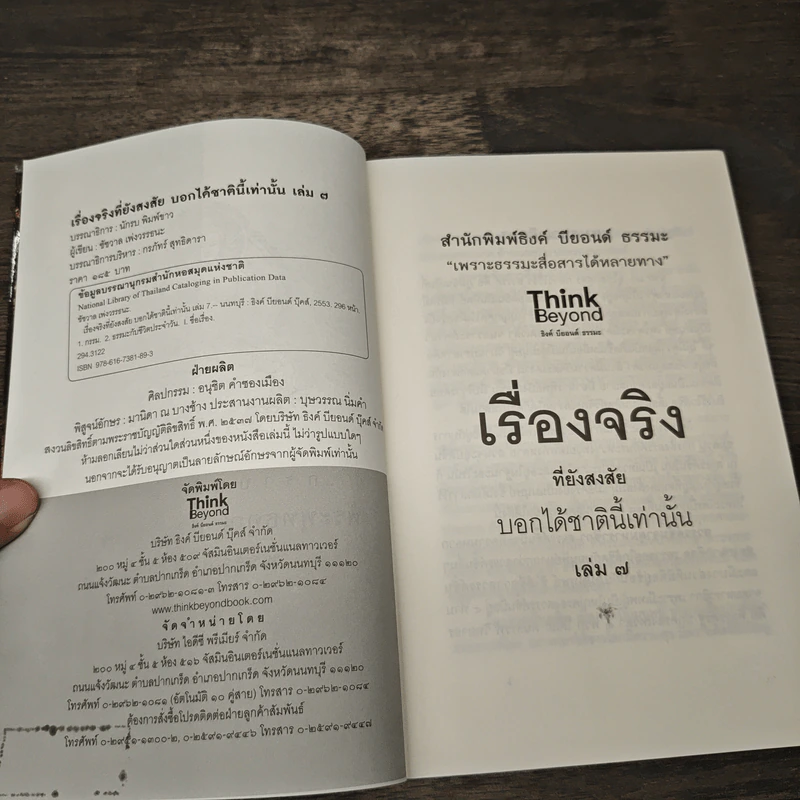 เรื่องจริงที่ยังสงสัย บอกได้ชาตินี้เท่านั้น เล่ม ๗
บรรณาธิการ : นักรบ พิมพ์ขาว
ผู้เขียน : ชัชวาล เพ่งวรรธนะ
บรรณาธิการบริหาร : กรภัทร์ สุทธิดารา
ราคา ๑๘๕ บาท
ข้อมูลบรรณานุกรมสำนักหอสมุดแห่งชาติ
National Library of Thailand Cataloging in Publication Data
ชัชวาล เพ่งวรรธนะ.
เรื่องจริงที่ยังสงสัย บอกได้ชาตินี้เท่านั้น เล่ม 7.-- นนทบุรี : ธิงค์ บียอนด์ บุ๊คส์, 2553. 296 หน้า.
1. กรรม. 2. ธรรมะกับชีวิตประจำวัน. I. ชื่อเรื่อง.
294.3122
ISBN 978-616-7381-89-3
ฝ่ายผลิต
ศิลปกรรม : อนุชิต คำซองเมือง
พิสูจน์อักษร : มานิดา ณ บางช้าง ประสานงานผลิต : บุษวรรณ นิ่มดำ
สงวนลิขสิทธิ์ตามพระราชบัญญัติลิขสิทธิ์ พ.ศ. ๒๕๓๗ โดยบริษัท ธิงค์ บียอนด์ บุ๊คส์ จำกัด
ห้ามลอกเลียนไม่ว่าส่วนใดส่วนหนึ่งของหนังสือเล่มนี้ ไม่ว่ารูปแบบใดๆ
นอกจากจะได้รับอนุญาตเป็นลายลักษณ์อักษรจากผู้จัดพิมพ์เท่านั้น
จัดพิมพ์โดย
Think
Beyond
ธิงค์ บียอนด์ ธรรมะ
บริษัท ธิงค์ บียอนด์ บุ๊คส์ จำกัด
๒๐๐ หมู่ ๔ ชั้น ๕ ห้อง ๕๐๙ จัสมินอินเตอร์เนชั่นแนลทาวเวอร์
ถนนแจ้งวัฒนะ ตำบลปากเกร็ด อำเภอปากเกร็ด จังหวัดนนทบุรี ๑๑๑๒๐
โทรศัพท์ ๐-๒๙๖๒-๑๐๘๑-๓ โทรสาร ๐-๒๙๖๒-๑๐๘๔
www.thinkbeyondbook.com
จัดจำหน่ายโดย
บริษัท ไอดีซี พรีเมียร์ จำกัด
๒๐๐ หมู่ ๔ ชั้น ๕ ห้อง ๕๑๖ จัสมินอินเตอร์เนชั่นแนลทาวเวอร์
ถนนแจ้งวัฒนะ ตำบลปากเกร็ด อำเภอปากเกร็ด จังหวัดนนทบุรี ๑๑๑๒๐
โทรศัพท์ ๐-๒๙๖๒-๑๐๘๑ (อัตโนมัติ ๑๐ คู่สาย) โทรสาร ๐-๒๙๖๒-๑๐๘๔
ต้องการสั่งซื้อโปรดติดต่อฝ่ายลูกค้าสัมพันธ์
โทรศัพท์ ๐-๒๙๕๑-๑๓๐๐-๒, ๐-๒๕๙๑-๙๔๔๖ โทรสาร ๐-๒๕๙๑-๙๔๔๗
สำนักพิมพ์ธิงค์ บียอนด์ ธรรมะ
"เพราะธรรมะสื่อสารได้หลายทาง"
Think
Beyond
ธิงค์ บียอนด์ ธรรมะ
เรื่องจริง
ที่ยังสงสัย
บอกได้ชาตินี้เท่านั้น
เล่ม ๗